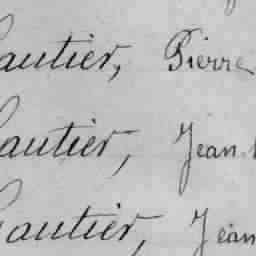 Gautier, Pierre
Gautier, Jean
Gautier, Jean